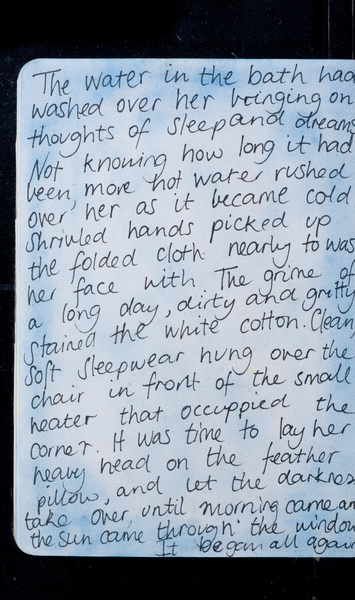 The water in the bath had
washed over her bringing on
thoughts of sleep and dreams
Not knowing how long it had
been, more hot water rushed
over her as it became cold
Shrivled hands picked up
the folded cloth nearby to was
her face with The grime of
a long day, dirty and gritty
stained the white cotton. Clean,
soft sleepwear hung over the
chair in front of the small
heater that occuppied the
corner. It was time to lay her
heavy head on the feather
pillow, and let the darknes
take over, until morning came an
the sun came through the window
It began all again